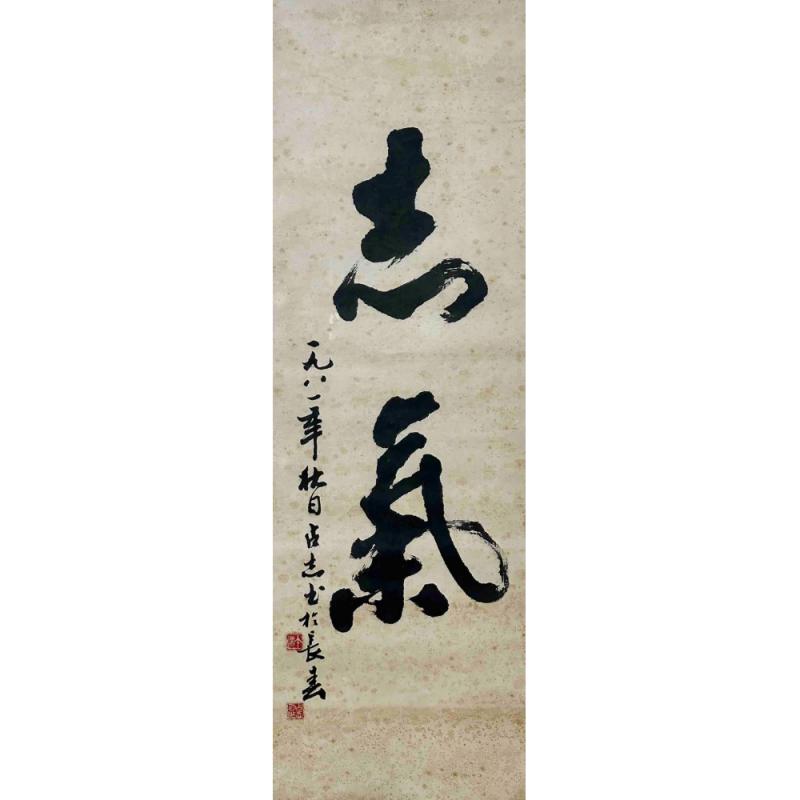 志氣
一九八一年秋日占志书於長春